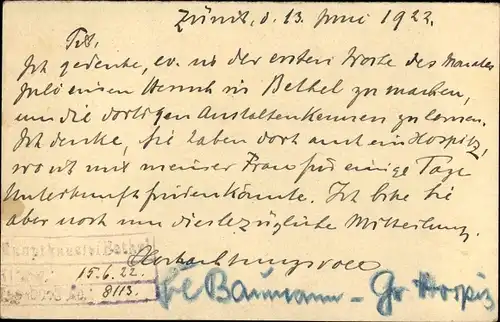 Zürich, d. 13. Juni 1922.
Tit.
Ich gedenke, ev. in der ersten Woche des Monates
Juli einen Besuch in Bethel zu machen,
um die dortigen Anstalten kennen zu lernen.
Ich denke, Sie haben dort auch ein Hospiz,
wo ich mit meiner Frau für einige Tage
Unterkunft finden könnte. Ich bitte Sie
aber noch um diesbezügliche Mitteilung.
Hochachtungsvoll
Hauptkanzlei Bethel
15.6.22.
8113.
Baumann - Gr. Hospiz